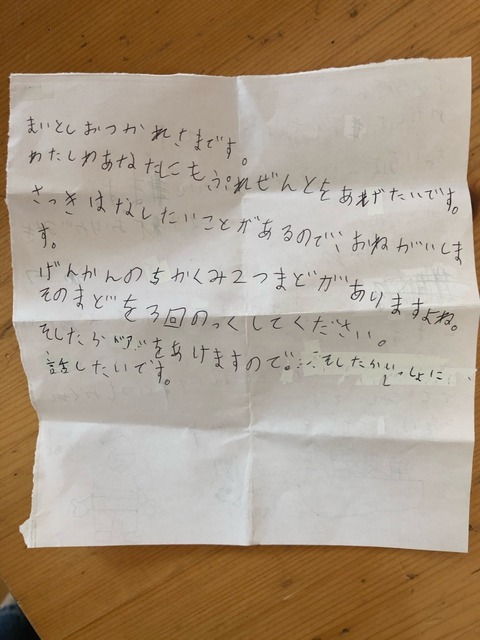 まいとしおつかれさまです。
わたしわあなたにもぷれぜんとをあげたいです。
さっきはなしたいことがあるので、おねがいしま
す。
げんかんのちかくみ2つまどがありますよね。
そのまどを3回のっくしてください。
そしたらドアをあけますので。そしたらいっしょに
話したいです。